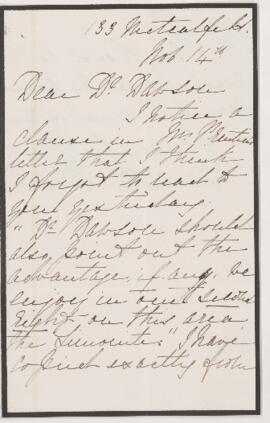 133 Metcalfe St.
Nov. 14th
Dear Dr. Dawson
I notice a
clause in Mr.
letter that I think
I forgot to read to
you yesterday.
"Dr Dawson should
also point out the
advantage if any, we
enjoy in our
Rights on this area
the " I have
exactly from